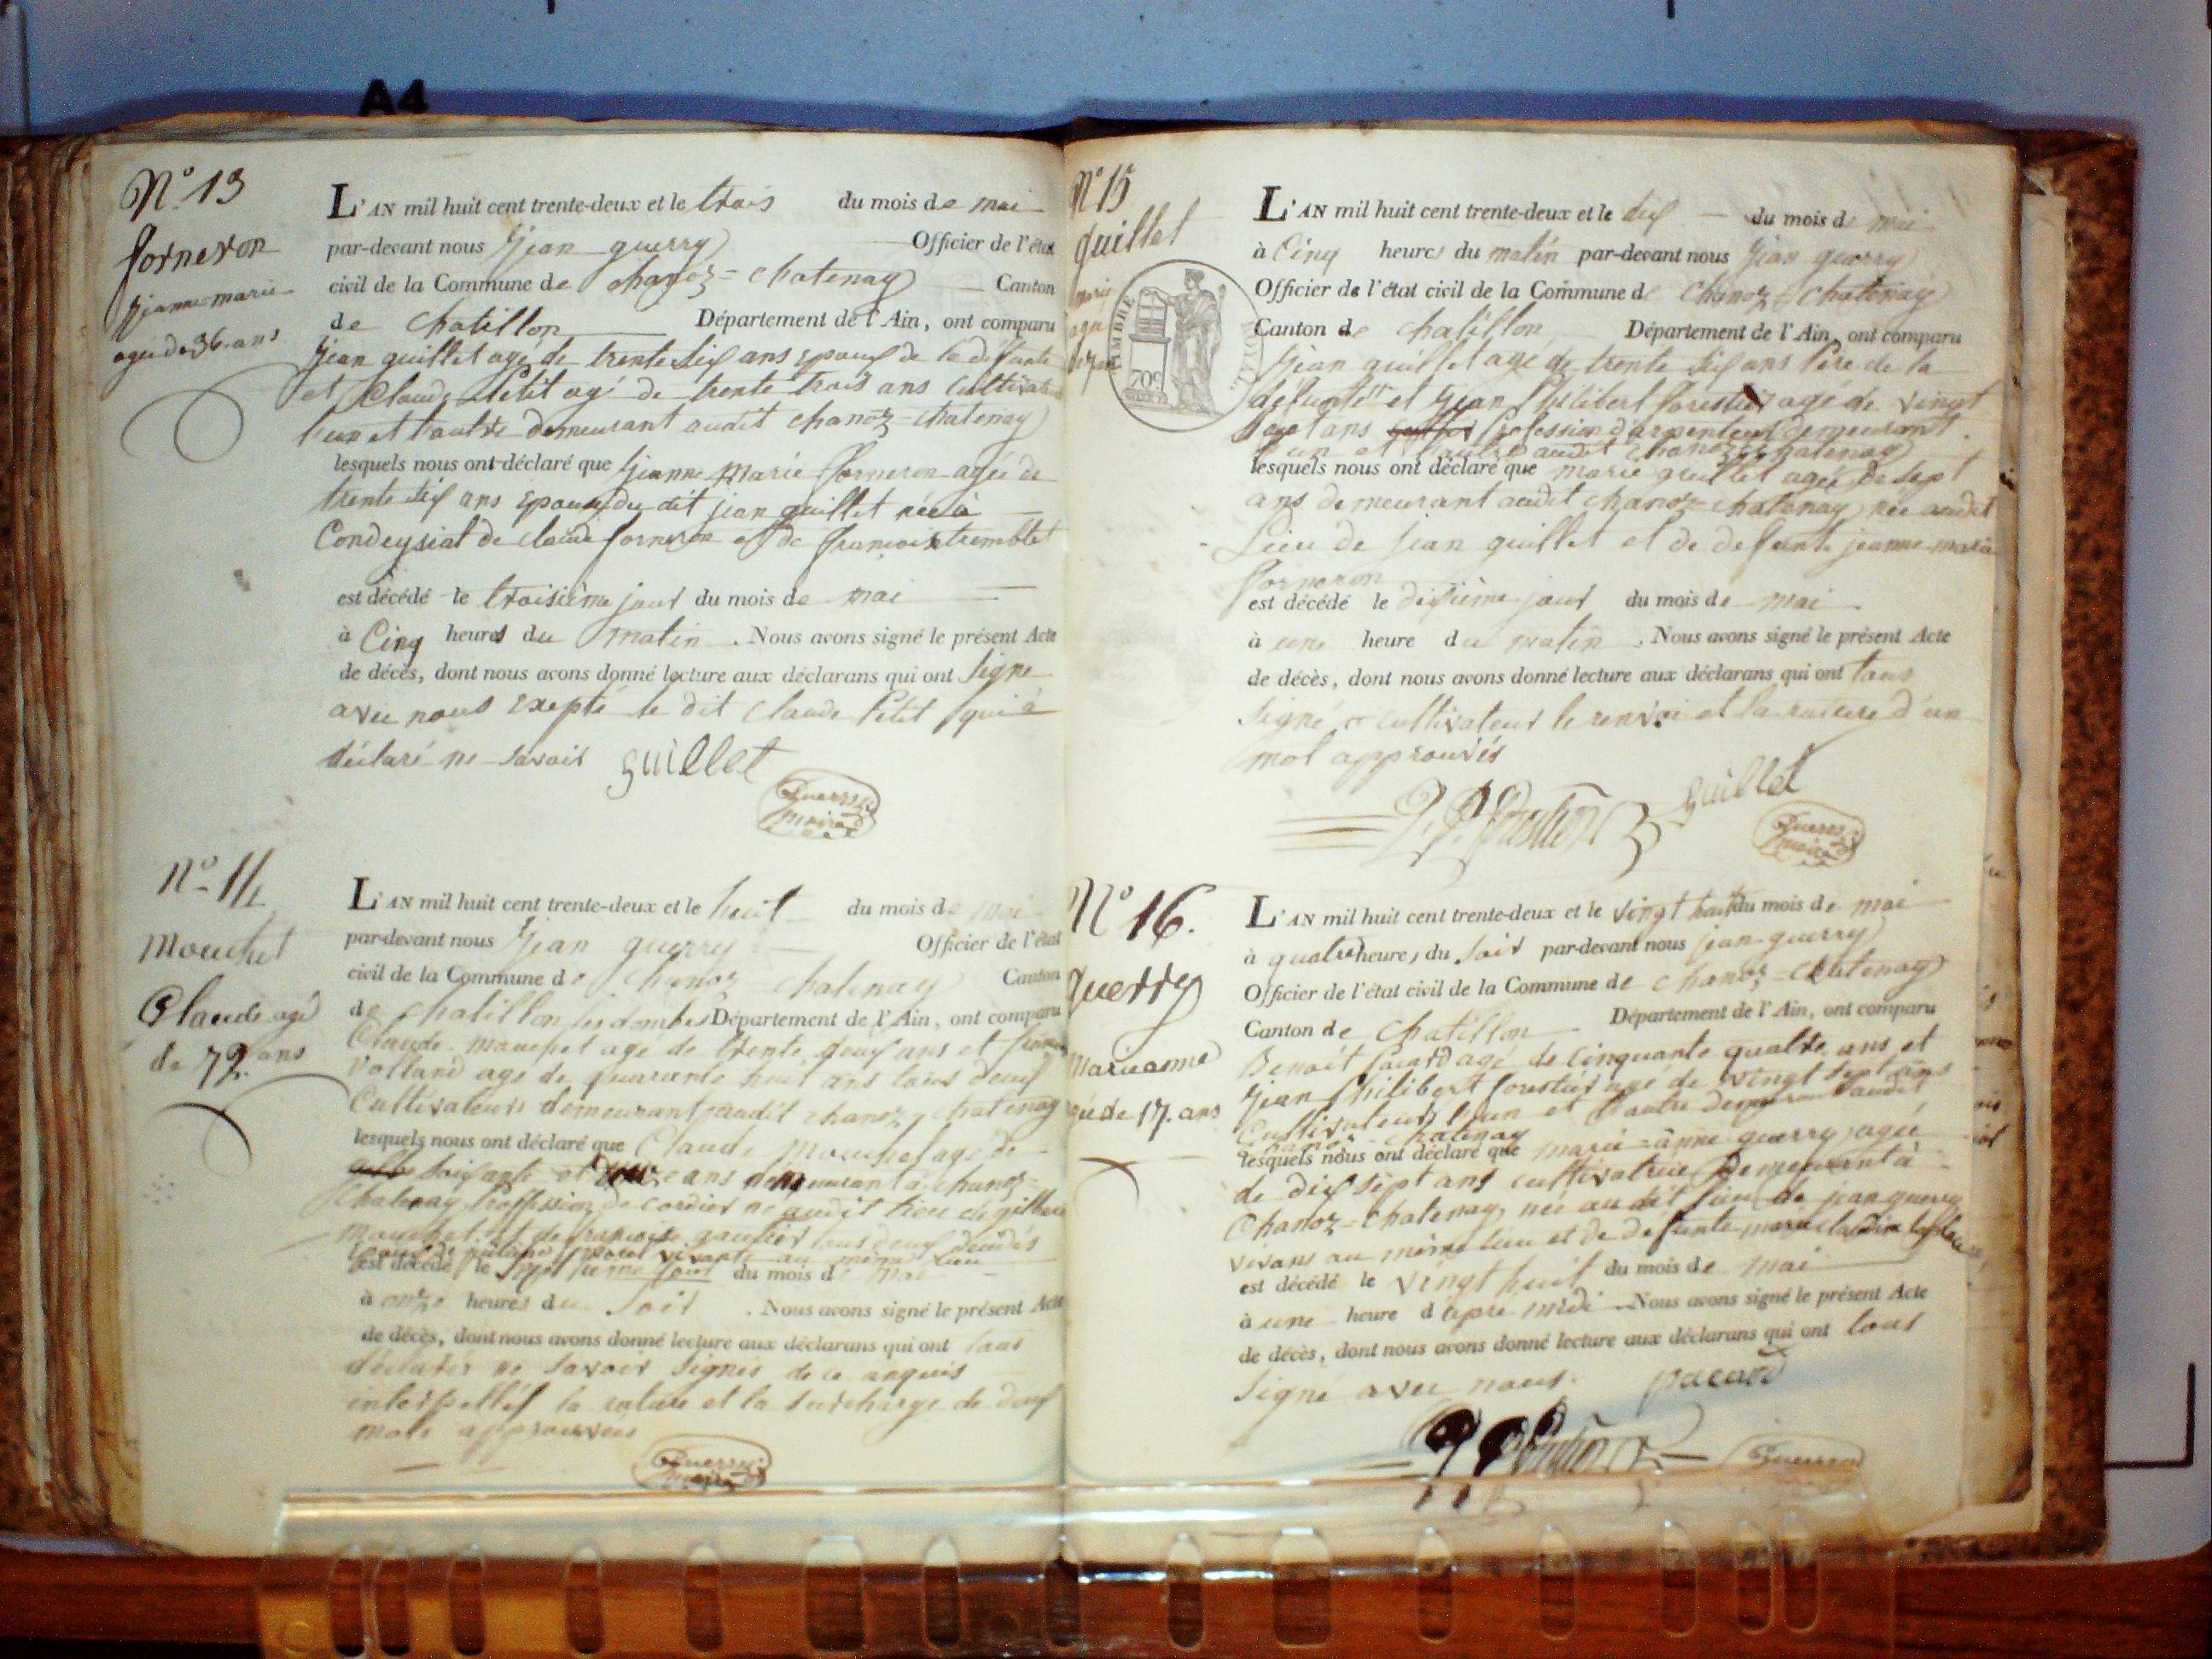 A4
N° 13
forneron
jeanne-marie
agée de 36 ans
L'AN mil huit cent trente-deux et le trois du mois de mai
par-devant nous jean guerry Officier de l'état
civil de la Commune de chanoz = chatenay Canton
de chatillon Département de l'Ain, ont comparu
jean guillet agé de trente six ans epoux de la défunte
et Claude Petit agé de trente trois ans Cultivateurs
l'un et l'autre demeurant audit chanoz = chatenay
lesquels nous ont déclaré que jeanne Marie forneron agée de
trente six ans epouse du dit jean guillet née à
Condeysiat de claude forneron et de françoise tremblet
est décédé le troisième jour du mois de mai
à Cinq heures du matin . Nous avons signé le présent Acte
de décès, dont nous avons donné lecture aux déclarans qui ont signé
avec nous exepté le dit claude Petit qui à
déclaré ne savoir guillet
Guerry
maire
N° 14
Mouchet
Claude agé
de 72 ans
L'AN mil huit cent trente-deux et le huit du mois de mai
par-devant nous jean guerry Officier de l'état
civil de la Commune de Chanoz chatenay Canton
de chatillon les dombes Département de l'Ain, ont comparu
Claude mouchet agé de trente deux ans et
Volland agé de quarante huit ans tous deux
Cultivateurs demeurant audit chanoz chatenay
lesquels nous ont déclaré que Claude Mouchet agé de
soixante et douze ans demeurant à chanoz =
chatenay Proffession de cordier né audit lieu de gilbert
mouchet et de françoise gautier tous deux décédés
vivante au même lieu
est décédé le sept ieme jour du mois de mai
à onze heures du soir . Nous avons signé le présent Acte
de décès, dont nous avons donné lecture aux déclarans qui ont tous
déclarés ne savoir signer de ce anquis
interpellés la rature et la surcharge de deux
mots approuvés
Guerry
maire
N° 15
guillet
marie
agée
de 7 ans
TIMBRE ROYAL
70c
L'AN mil huit cent trente-deux et le dix du mois de mai
à Cinq heures du matin par-devant nous jean guerry
Officier de l'état civil de la Commune de Chanoz = chatenay
Canton de chatillon Département de l'Ain, ont comparu
jean guillet agé de trente six ans Père de la
défunte et jean Philibert forestier agé de vingt
sept ans Profession d'arpenteur demeurant
l'un et l'autre audit chanoz chatenay
lesquels nous ont déclaré que marie guillet agée de sept
ans demeurant audit chanoz = chatenay née audit
Lieu de jean guillet et de defunte jeanne-marie
forneron
est décédé le dixième jour du mois de mai
à une heure du matin . Nous avons signé le présent Acte
de décès, dont nous avons donné lecture aux déclarans qui ont tous
signé cultivateur le renvoi et la rature d'un
mot approuvés
guillet
Guerry
maire
N° 16.
guerry
Marie anne
agée de 17. ans
L'AN mil huit cent trente-deux et le vingt huit du mois de mai
à quatre heures du soir par-devant nous jean guerry
Officier de l'état civil de la Commune de chanoz = chatenay
Canton de chatillon Département de l'Ain, ont comparu
Benoit Pacard agé de cinquante quatre ans et
jean Philibert forestier agé de vingt sept ans
Cultivateurs l'un et l'autre demeurant audit
chanoz chatenay
lesquels nous ont déclaré que marie = anne guerry agée
de dix sept ans cultivatrice demeurant à
Chanoz = chatenay, née au dit lieu de jean guerry
vivans au même lieu et de defunte marie claudine
est décédé le vingt huit du mois de mai
à une heure d'apre midi . Nous avons signé le présent Acte
de décès, dont nous avons donné lecture aux déclarans qui ont tous
signé avec nous. pacard
Guerry